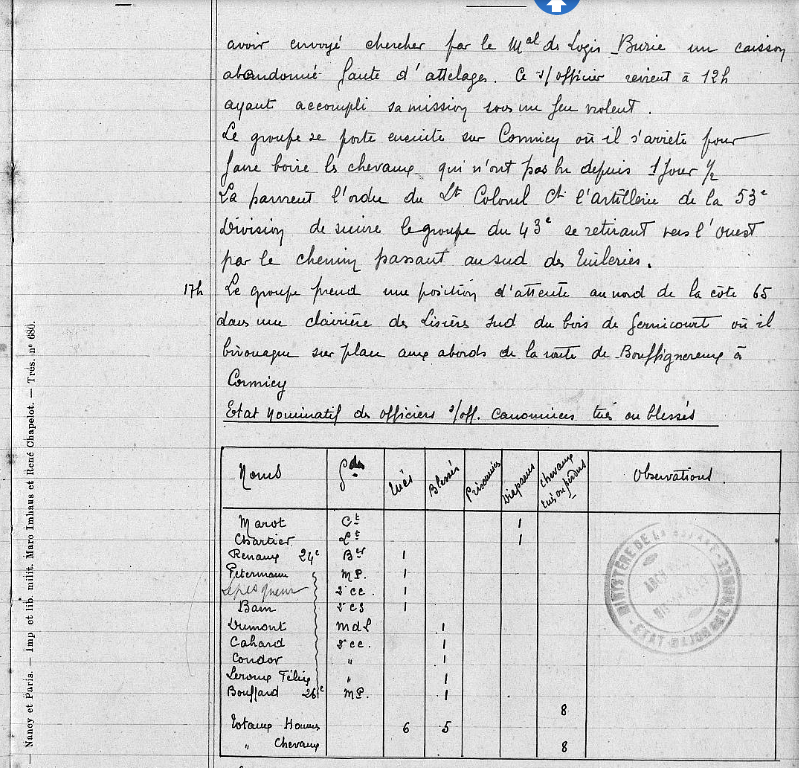 avoir envoyé chercher par le Mal des Logis Burie un caisson
abandonné faute d'attelages. Ce s/officier revient à 12h
ayant accompli sa mission sous un feu violent.
Le groupe se porte ensuite sur Cormicy où il s'arrête pour
faire boire les chevaux qui n'ont pas bu depuis 1 jour 1/2
Là parvient l'ordre du Lt Colonel Ct l'artillerie de la 53e
Division de suivre le groupe du 43e se retirant vers l'Ouest
par le chemin passant au sud des Tuileries.
17h Le groupe prend une position d'attente au nord de la côte 65
dans une clairière des Lisières sud du bois de Gernicourt où il
bivouaque sur place aux abords de la route de Bouffignereux à
Cormicy
Etat nominatif des officiers s/off. canonniers tués ou blessés
Noms Gdes Tués Blessés Prisonniers Disparus Chevaux tués ou perdus Observations
Marot Ct 1
Chartier Lt 1
Renaux 24e Ber 1
Petermann MP. 1
Lepesqueur 2e cc. 1
Bain 2e cs 1
Dumont MdL 1
Cahard 2e cc. 1
Condor " 1
Leroux Félix " 1
Bouffard 26e MP. 1
8
Totaux Hommes 6 5
" Chevaux 8
MINISTÈRE DE LA GUERRE
ÉTAT-MAJOR DE L'ARMÉE
Nancy et Paris. — Imp. et lib. milit. Marc Imhaus et René Chapelot. — Trés. n° 680.